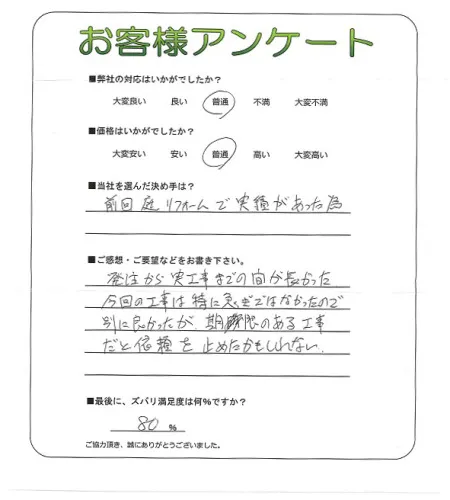 お客様アンケート
■弊社の対応はいかがでしたか？
大変良い 良い 普通 不満 大変不満
■価格はいかがでしたか？
大変安い 安い 普通 高い 大変高い
■当社を選んだ決め手は？
前回庭リフォームで実績があった為
■ご感想・ご要望などをお書き下さい。
発注から実工事までの間が長かった
今回の工事は特に急ぎではなかったので
別に良かったが、期限のある工事
だと依頼を止めたかもしれない。
■最後に、ズバリ満足度は何％ですか？
80 %
ご協力頂き、誠にありがとうございました。